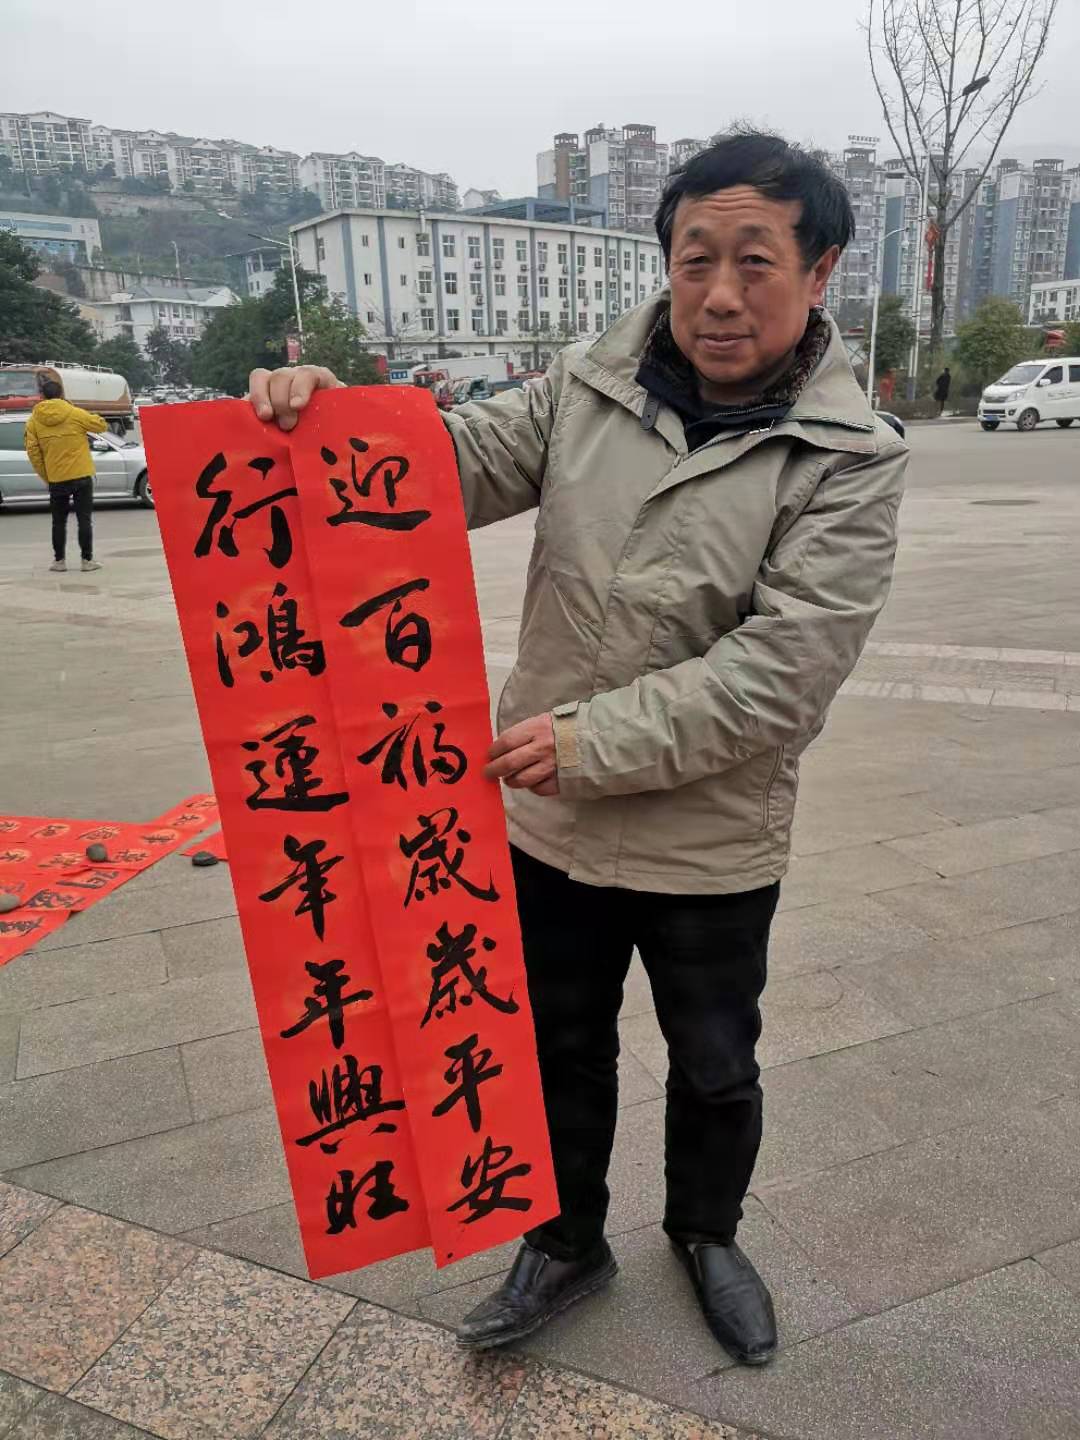 迎百福歲歲平安
行鴻運年年興旺